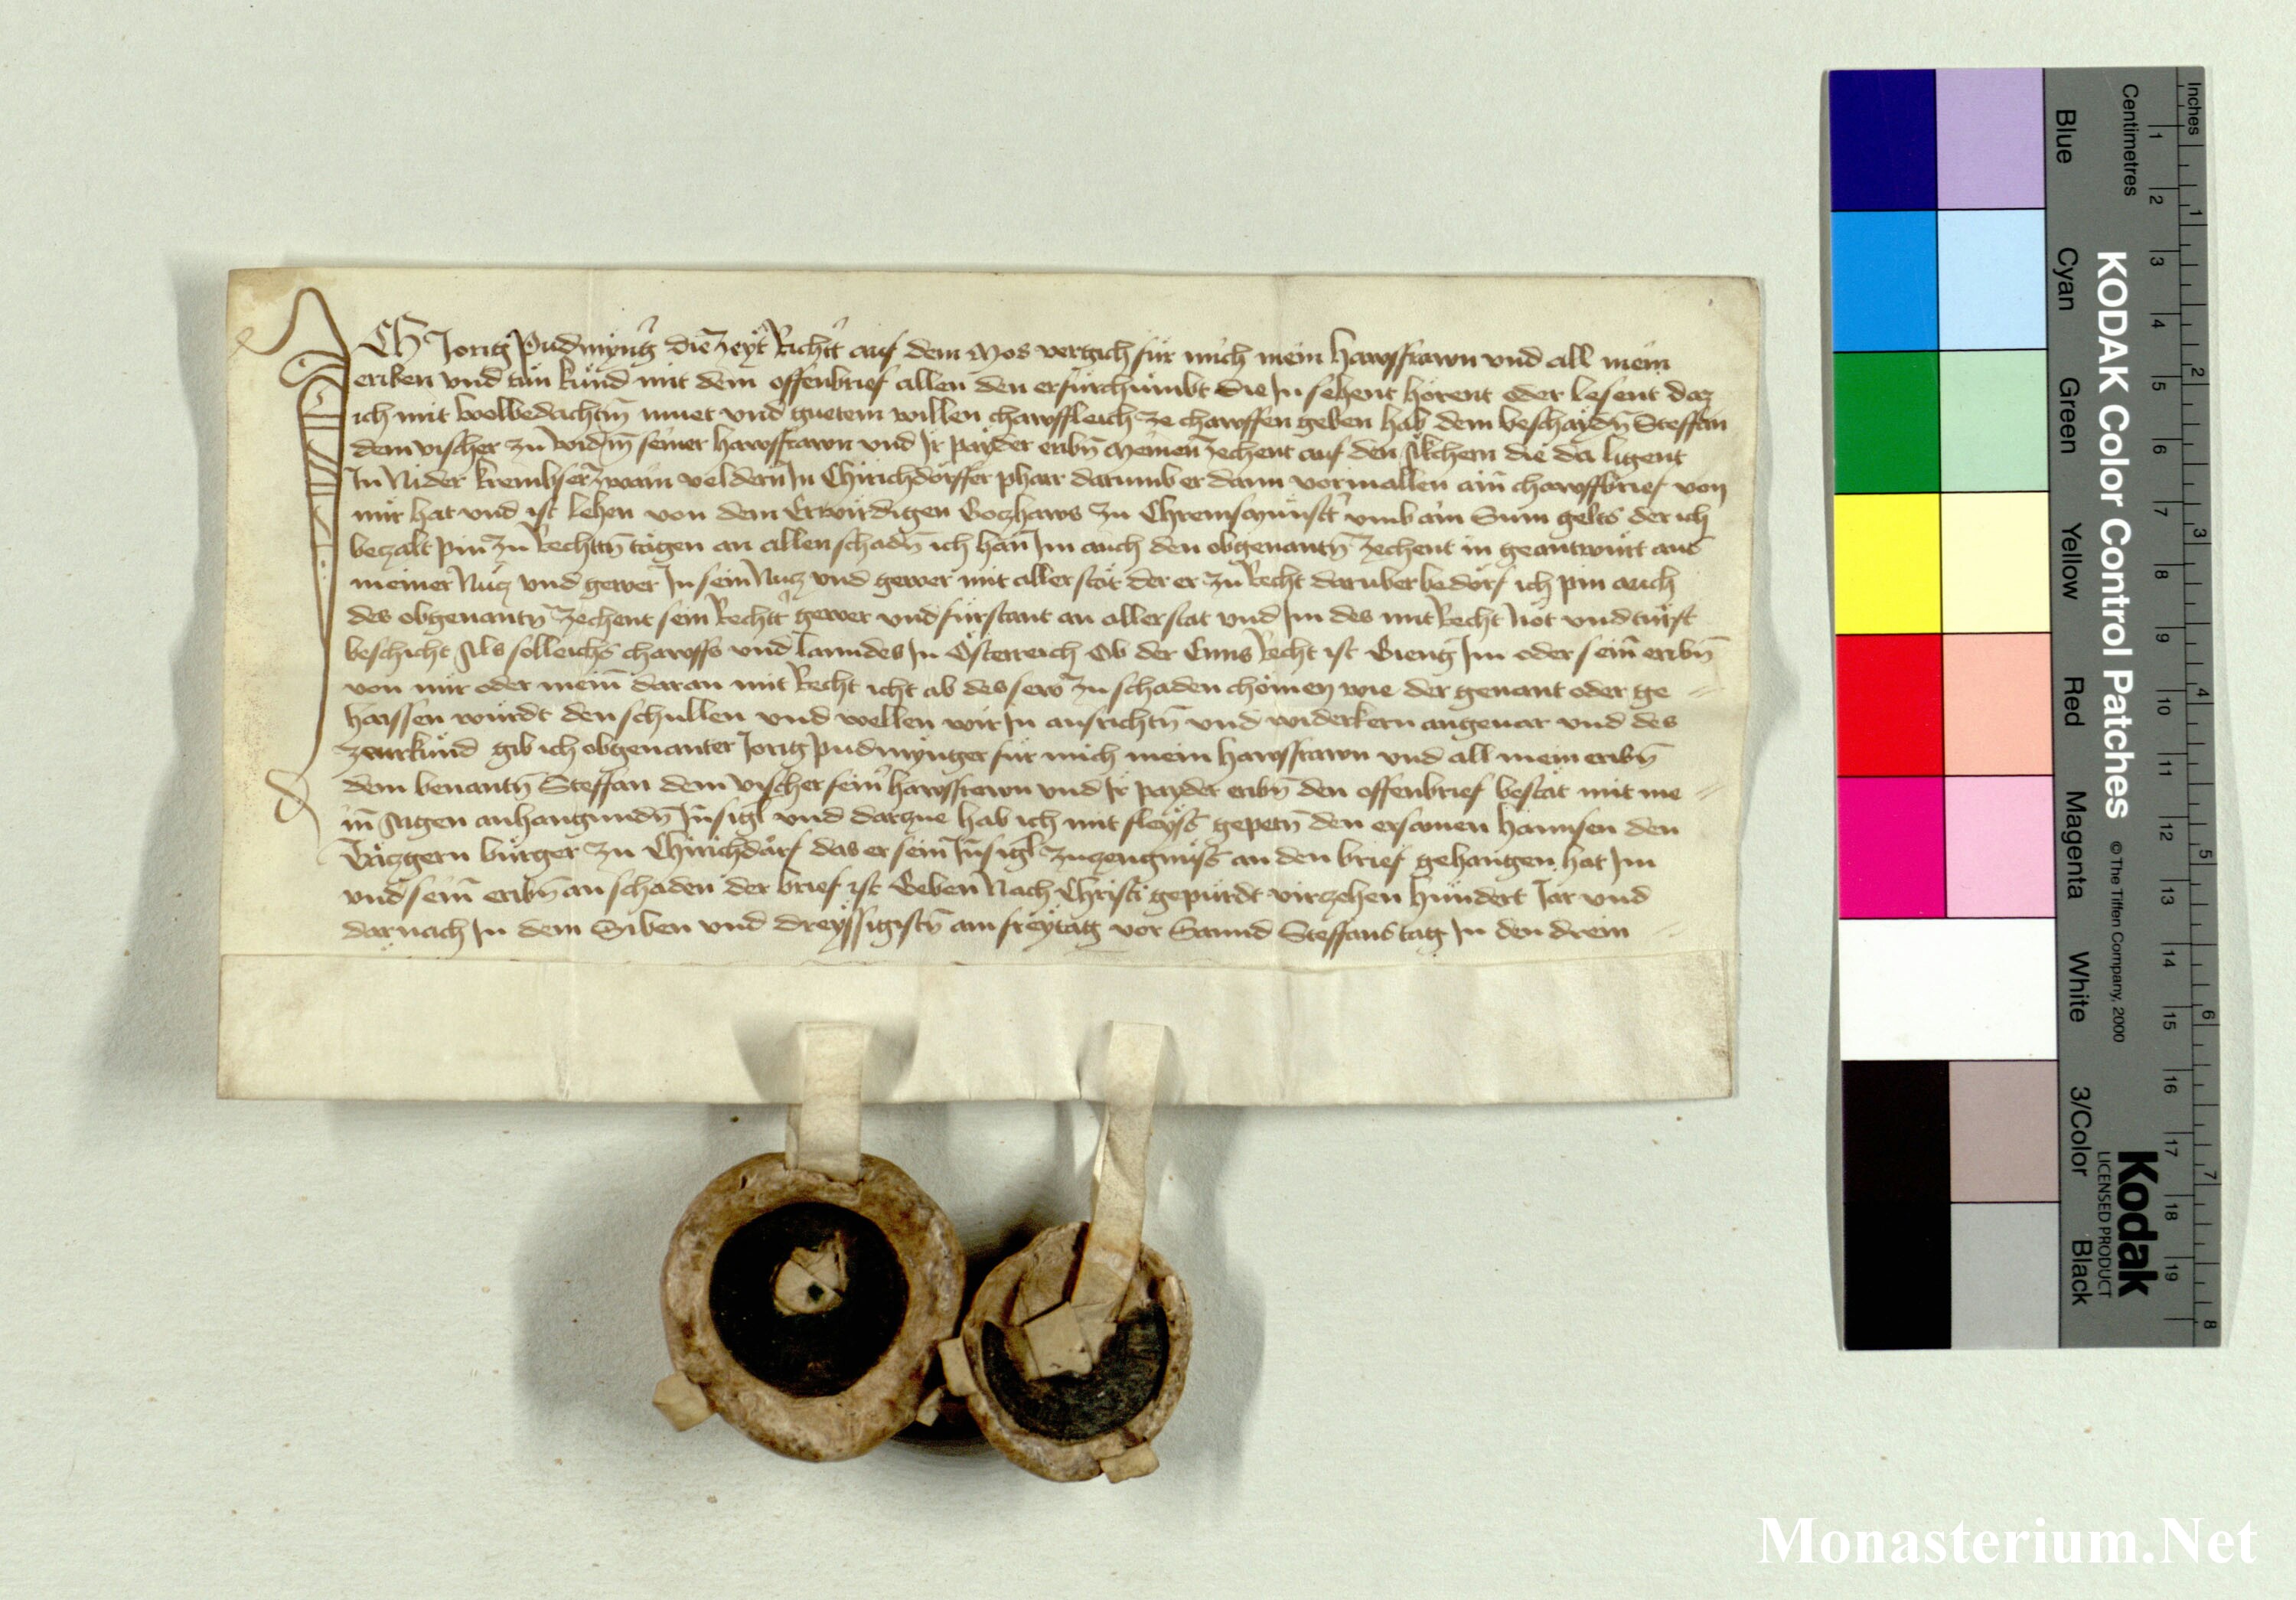 ICH Jorig Pudmyng̃ die zeyt Richtr̃ auf dem Mos vergich für mich mein hawsfrawn vnd all mein
eriben vnd tün kund mit dem offenbrief allen den er fürchümbt die In sehent hörent oder lesent daz
ich mit wolbedachtm̃ muet vnd guetem willen chawffleich ze chawffen geben hab dem beschaydñ Steffan
dem vischer zu widm̃ seiner hawsfrawn vnd Ir payder eribñ meinen zechent auf den Äkchern die da ligent
In Nider krembser zwain veldern In Chirichdorffer pharr darumb er dann vormallen ain̄ chawffbrief von
mir hat vnd ist lehen von dem Erwirdigen Gozhaws zu Chremsmünstr̃ vmb ain Sum gelts der ich
betzalt pin zu Rechttñ tägen an allen schadñ ich han Im auch den obgenantñ zechent in geantwürt aus
meiner Nucz vnd gewer In sein Nucz vnd gewer mit aller stät der er zu Recht darüber bedorf ich pin auch
des obgenantñ zechent sein Rechtr̃ gewer vnd fürstant an aller stat vnd Im des mit Recht Not vnd türft
beschicht Als solleichs chawffs vnd lanndes In Österreich Ob der Enns Recht ist Gieng Im oder sein̄ eribñ
von mir oder mein̄ daran mit Recht icht ab des sew zu schaden chömen wie der genant oder ge
haissen würdt den schullen vnd wellen wir In ausrichtñ vnd widerkern angeuar vnd des
zw vrkund gib ich obgenanter Jorig Pudmynger für mich mein hawsfrawn vnd all mein eribñ
dem benantñ Steffan dem vischer sein̄ hawsfrawn vnd Ir payder eribñ den offenbrief bestät mit me
in̄ Aigen anhangundñ Insigl vnd darzue hab ich mit fleyss gepetñ den ersamen hannsen den
bürger zu Chirichdorf das er sein Insigl zuzeugnüss an den brief gehangen hat Im
vnd sein̄ eribñ an schaden der brief ist Geben Nach Christi gepürdt virzehen hundert Jar vnd
darnach In dem Siben vnd dreyssigistñ am freytag vor Sannd Steffans tag In den drein
Inches
Centimetres
KODAK Color Control Patches
© The Tiffen Company, 2000
Kodak
LICENSED PRODUCT
Blue
Cyan
Green
Yellow
Red
Magenta
White
3/Color
Black
1 2 3 4 5 6 7 8 9 10 11 12 13 14 15 16 17 18 19
1 2 3 4 5 6 7 8
Monasterium.Net